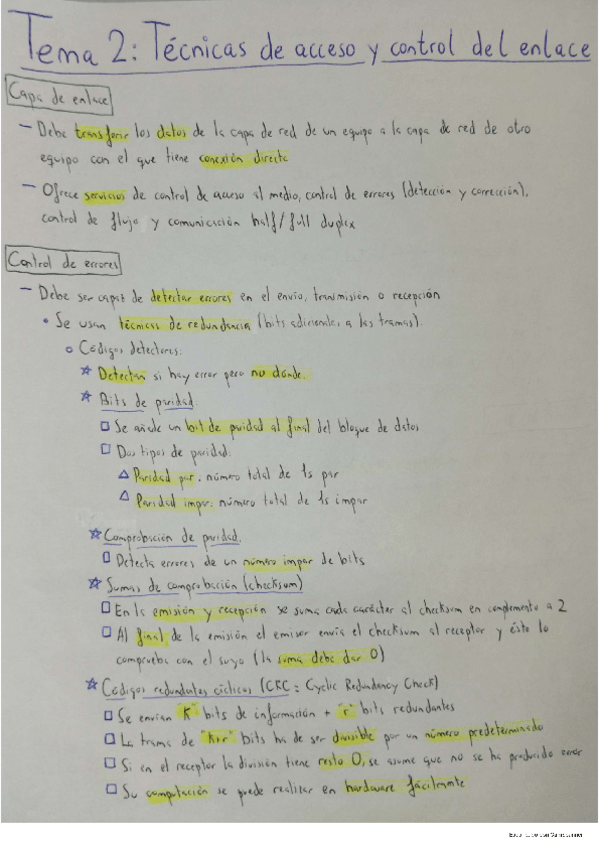 Tema 2: Técnicas de acceso y control del enlace
Capa de enlace
– Debe transferir los datos de la capa de red de un equipo a la capa de red de otro
equipo con el que tiene conexión directa
– Ofrece servicios de control de acceso al medio, control de errores (detección y corrección),
control de flujo y comunicación half/full duplex
Control de errores
– Debe ser capaz de detectar errores en el envío, transmisión o recepción
• Se usan técnicas de redundancia (bits adicionales a las tramas).
○ Códigos detectores:
☆ Detectan si hay error pero no donde.
☆ Bits de paridad:
□ Se añade un bit de paridad al final del bloque de datos
□ Dos tipos de paridad:
△ Paridad par: número total de 1s par
△ Paridad impar: número total de 1s impar
☆ Comprobación de paridad.
□ Detecta errores de un número impar de bits
☆ Sumas de comprobación (checksum)
□ En la emisión y recepción se suma cada carácter al checksum en complemento a 2
□ Al final de la emisión el emisor envía el checksum al receptor y éste lo
comprueba con el suyo (la suma debe dar 0)
☆ Códigos redundantes cíclicos (CRC = Cyclic Redundancy Check)
□ Se envían "K" bits de información + "r" bits redundantes
□ La trama de "k+r" bits ha de ser divisible por un número predeterminado
□ Si en el receptor la división tiene resto 0, se asume que no se ha producido error
□ Su computación se puede realizar en hardware fácilmente